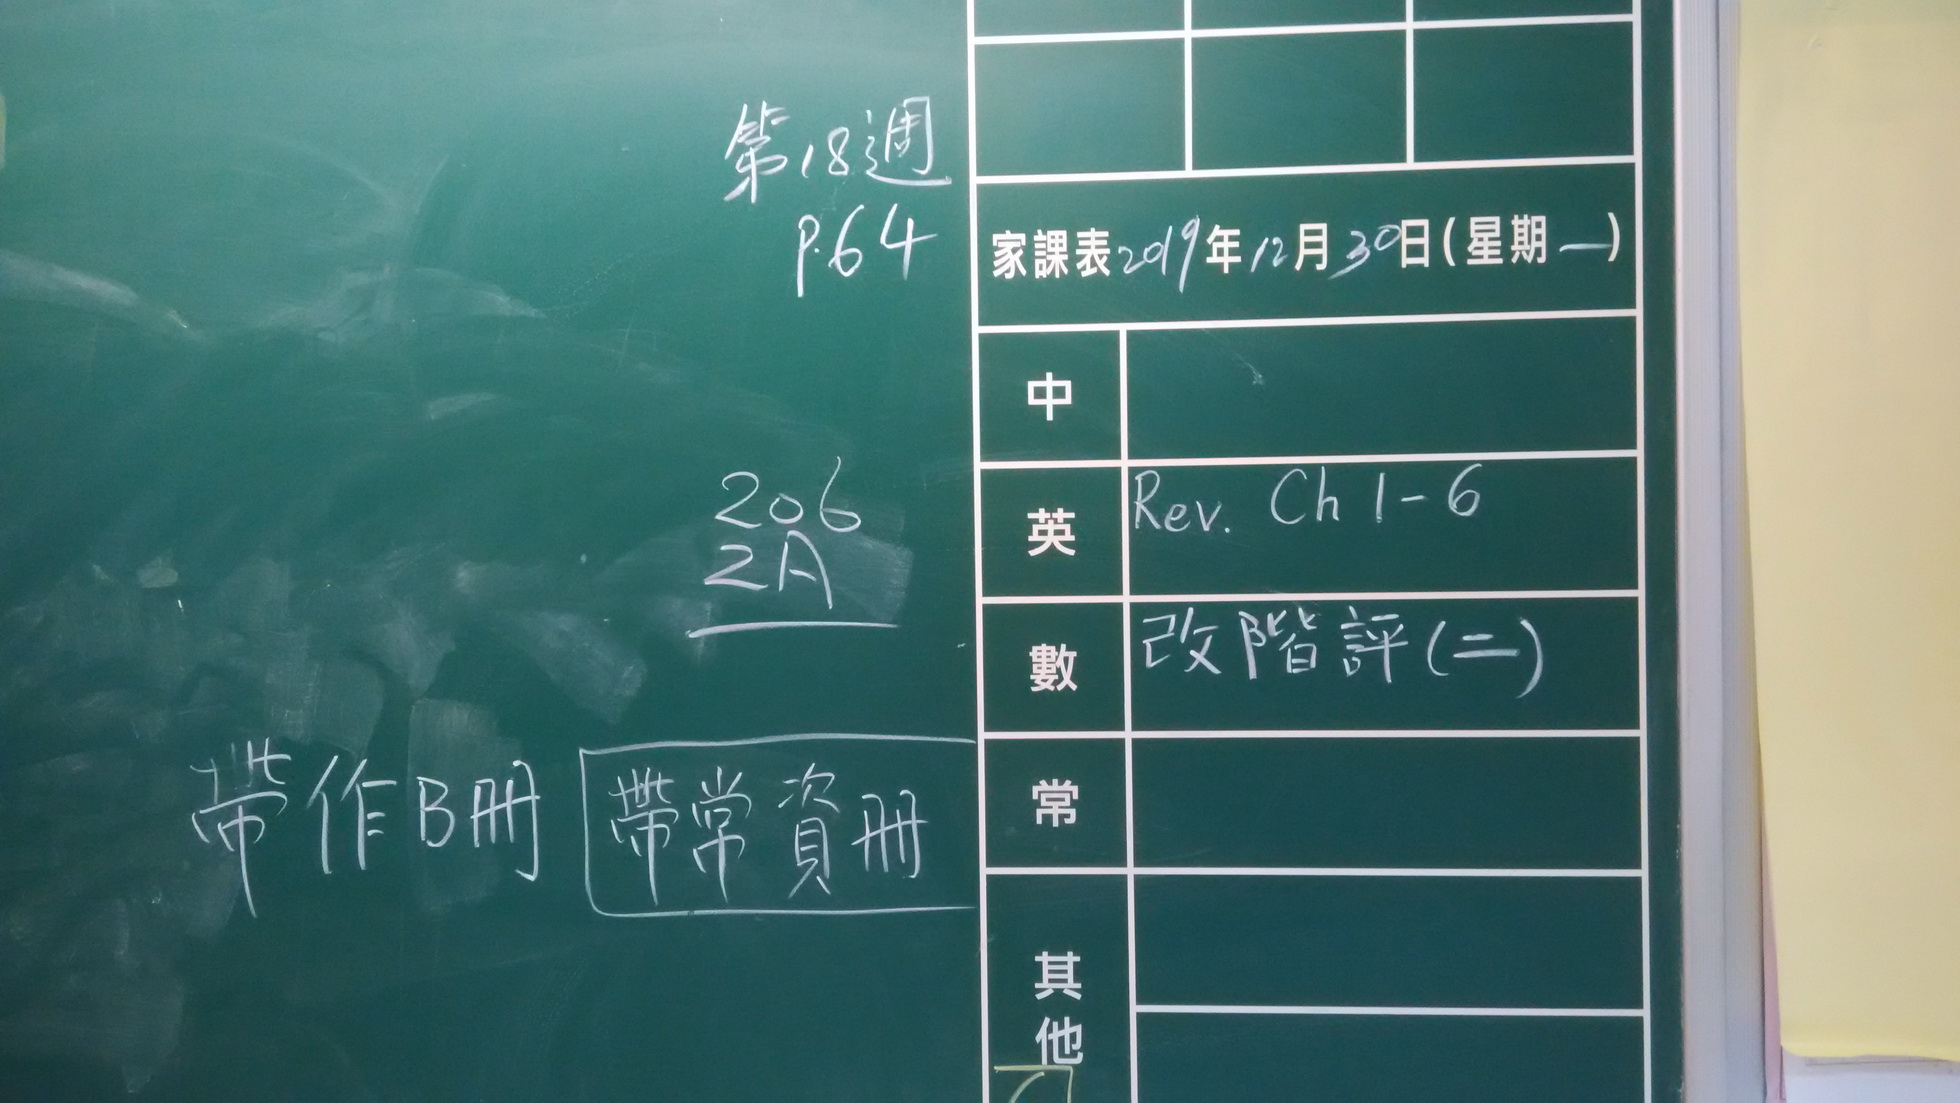 第18週
P.64
家課表2019年12月30日(星期一)
中
206
2A
英 Rev. Ch 1-6
數 改階評(二)
帶作B冊 帶常資冊
常
其他